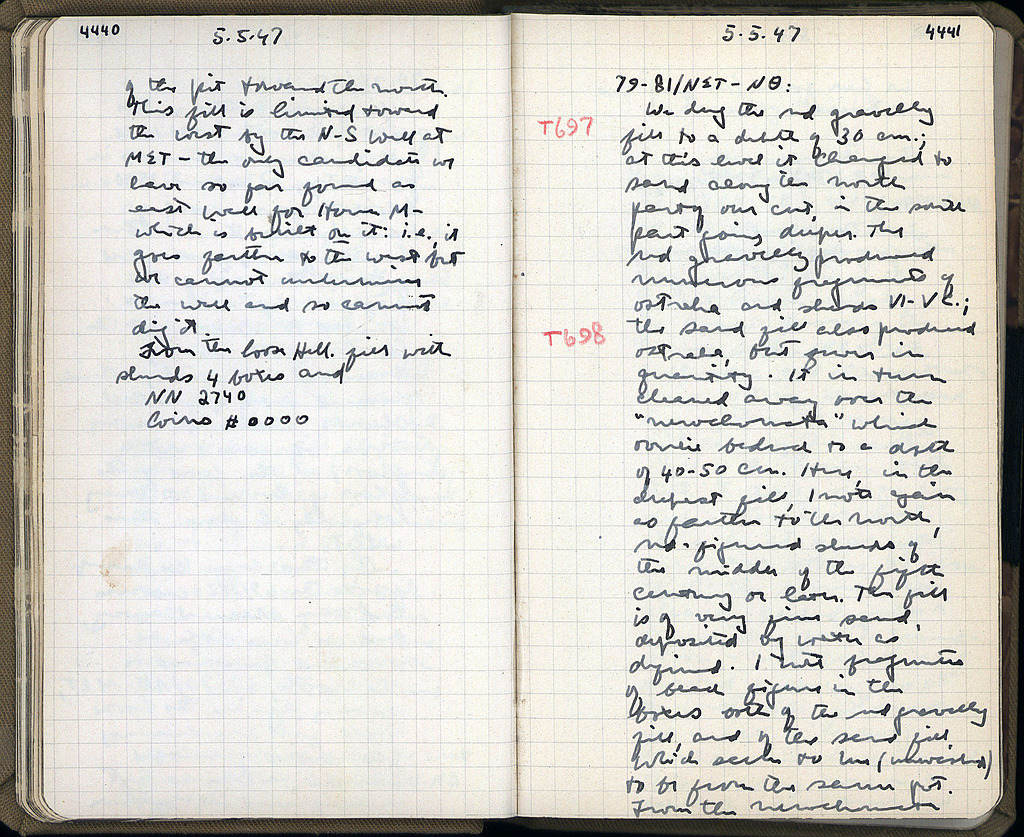 4440
5.5.47
of the pit toward the north.
This fill is limited toward
the west by the N-S wall at
MΣT - the only candidate we
have so far found as
east wall for House M -
which is built on it: i.e., it
goes farther to the west but
we cannot undermine
the wall and so cannot
dig it.
From the loose Hell. fill with
sherds 4 boxes and
NN 2740
Coins #0000
4441
5.5.47
79-81/NΣT-NΘ:
T697
We dug the red gravelly
fill to a depth of 30 cm.;
at this level it changed to
sand along the north
part of our cut, in the south
part going deeper. The
red gravelly produced
numerous fragments of
ostraka and sherds VI-V c.;
T698
the sand fill also produced
ostraka, but fewer in
quantity. It in turn
cleared away over the
"newchomata" which
bedrock to a depth
of 40-50 cm. Here, in the
deepest fill, I note again
as farther to the north,
red-figured sherds of
the middle of the fifth
century or later. The fill
is of very fine sand,
deposited by water as
defined. I note fragments
of black figure in the
boxes both of the red gravelly
fill, and of the sand fill
which seem to me (unwashed)
to be from the same pot.
From the